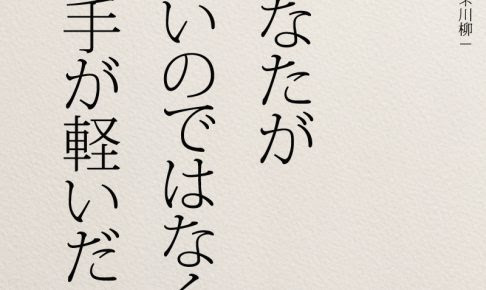 川柳一
なたが
いのではなく
手が軽いだ